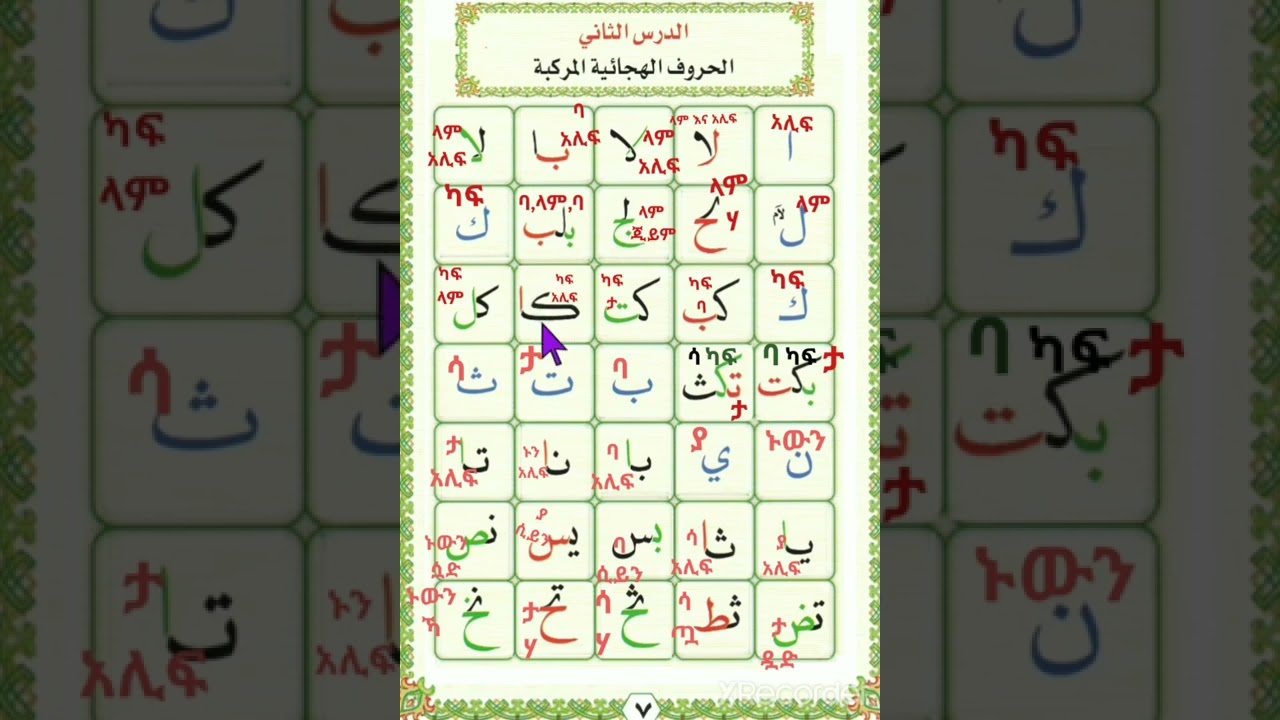 الدرس الثاني
الحروف الهجائية المركبة
አሊፍ
ا
ላም እና አሊፍ
لا
ላም
አሊፍ
لا
ባ
አሊፍ
با
ላም
አሊፍ
لا
ላም
ل
لآم
ላም
ሃ
لح
ላም
ጂ.ይም
لج
ባ,ላም,ባ
بلب
ካፍ
ك
ካፍ
ك
ካፍ
ባ
كب
ካፍ
ታ
كت
ካፍ
አሊፍ
كا
ካፍ
ላም
كل
ባ ካፍ ታ
بكت
ሳ ካፍ
ታ
تكث
ባ
ب
ታ
ت
ሳ
ث
ኑውን
ن
ያ
ي
ባ
አሊፍ
با
ኑን
አሊፍ
نا
ታ
አሊፍ
تا
ያ
አሊፍ
يا
ሳ
አሊፍ
ثا
ባ
ሲ.ይን
بس
ያ
ሲ.ይን
يس
ኑውን
ሷድ
نص
ታ
ዷድ
تض
ሳ
ጧ
ثط
ሳ
ሃ
ثح
ታ
ሃ
تح
ኑውን
ኻ
نخ
٧
XRecorder